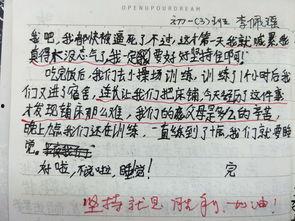 OPENUPOURDREAM
277-(3)班 李佩瑶
我吧,我都快被逼死了不过,这才第一天我就喊累我
真得太没志气了我一定要好好坚持住啊!
吃完饭后,我们去了操场训练,训练了1个小时后我
们又进了宿舍,连长让我们把床铺今天经历了这件事
才发现铺床那么难,我们的爸父母是多么的辛苦,
晚上了虽我们还在训练,一直练到了十点我们就要睡
觉。
好啦,不说啦,睡觉! 完
坚持就是胜利,加油!